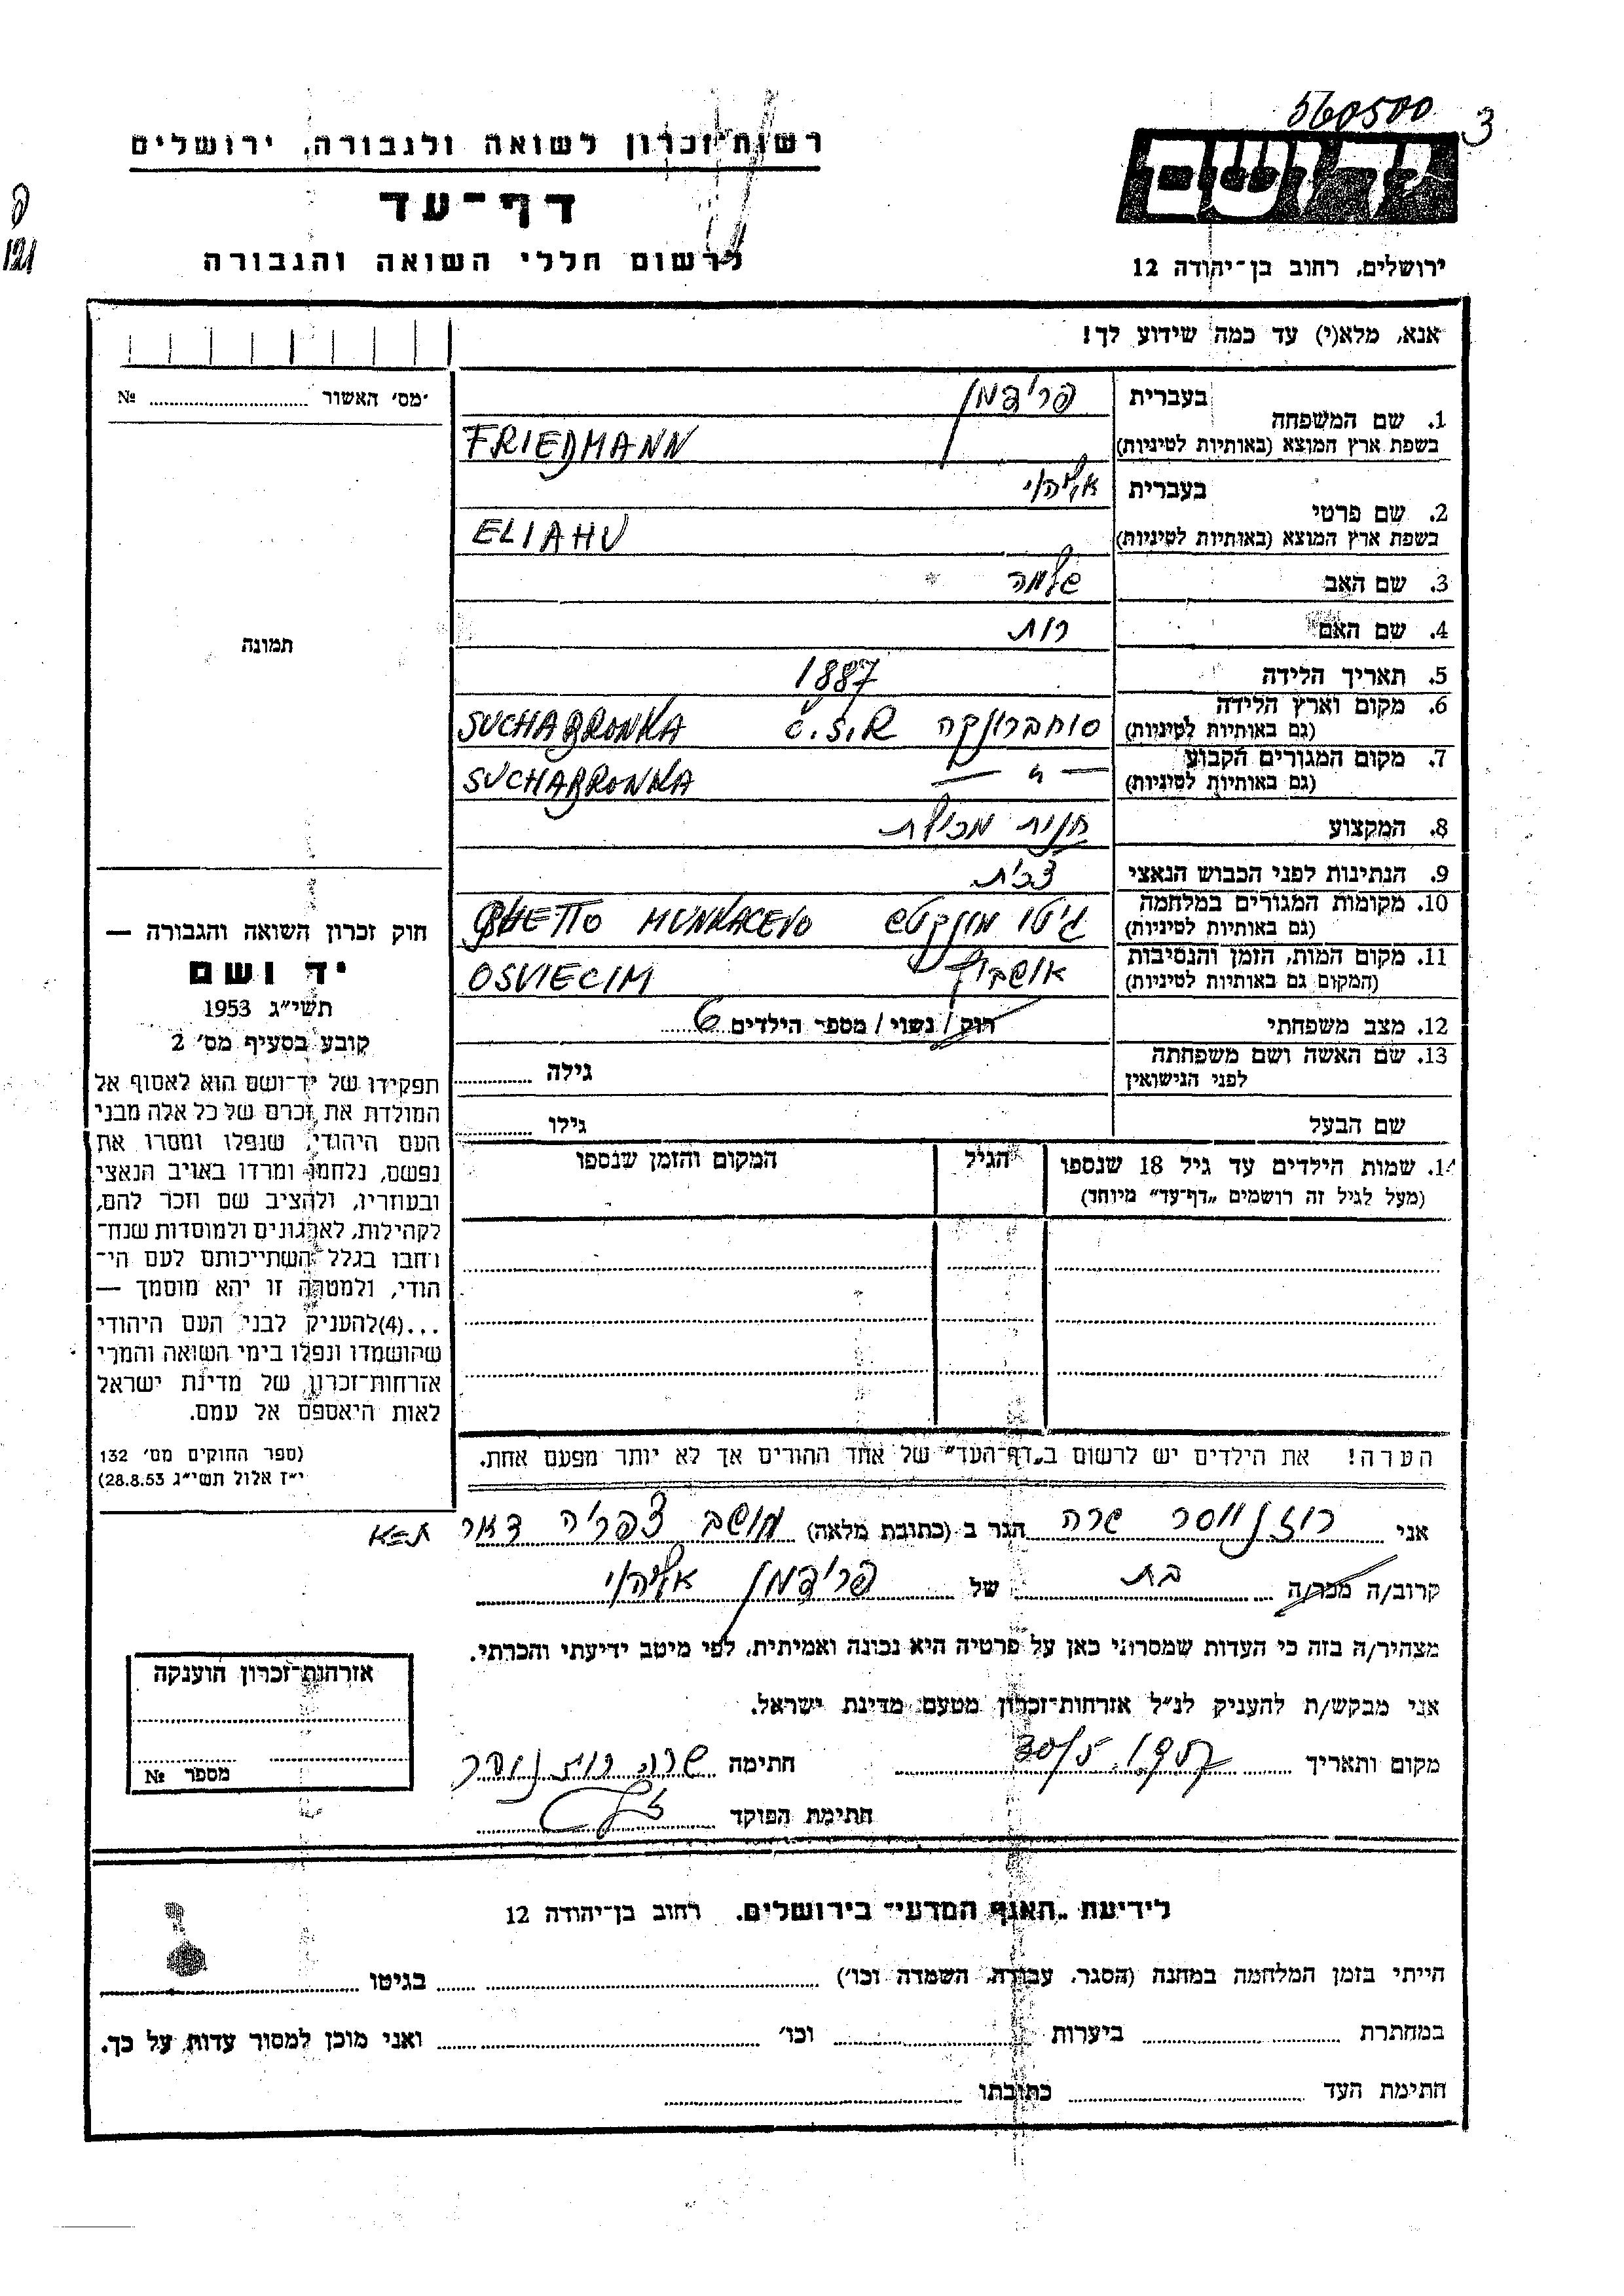 560500 3
רשות זכרון לשואה ולגבורה, ירושלים
דף-עד
לרשום חללי השואה והגבורה
יד ושם
ירושלים, רחוב בן-יהודה 12
121
אנא, מלא(י) עד כמה שידוע לך!
מס' האשור № 
1. שם המשפחה
בעברית פרידמן
בשפת ארץ המוצא (באותיות לטיניות) FRIEDMANN
2. שם פרטי
בעברית אליהו
בשפת ארץ המוצא (באותיות לטיניות) ELIAHU
3. שם האב שלמה
4. שם האם רות
5. תאריך הלידה 1887
6. מקום וארץ הלידה
(גם באותיות לטיניות) סוחברונקה Č.S.R. SUCHABRONKA
7. מקום המגורים הקבוע
(גם באותיות לטיניות) — " — SUCHABRONKA
8. המקצוע חנות מכולת
9. הנתינות לפני הכבוש הנאצי צכית
10. מקומות המגורים במלחמה
(גם באותיות לטיניות) גיטו מונקטש GHETTO MUNKACEVO
11. מקום המות, הזמן והנסיבות
(המקום גם באותיות לטיניות) אושביץ OSVIECIM
12. מצב משפחתי רוק/ נשוי/ מספר הילדים 6
13. שם האשה ושם משפחתה
לפני הנישואין גילה
שם הבעל גילו
14. שמות הילדים עד גיל 18 שנספו הגיל המקום והזמן שנספו
(מעל לגיל זה רושמים "דף-עד" מיוחד)
תמונה
חוק זכרון השואה והגבורה —
יד ושם
תשי"ג 1953
קובע בסעיף מס' 2
תפקידו של יד-ושם הוא לאסוף אל
המולדת את זכרם של כל אלה מבני
העם היהודי, שנפלו ומסרו את
נפשם, נלחמו ומרדו באויב הנאצי
ובעוזריו, ולהציב שם וזכר להם,
לקהילות, לארגונים ולמוסדות שנח-
רחבו בגלל השתייכותם לעם הי-
הודי, ולמטרה זו יהא מוסמך —
...(4)להעניק לבני העם היהודי
שהושמדו ונפלו בימי השואה והמרי
אזרחות-זכרון של מדינת ישראל
לאות היאספם אל עמם.
(ספר החוקים מס' 132
י"ז אלול תשי"ג 28.8.53)
הערה! את הילדים יש לרשום ב"דף-העד" של אחד ההורים אך לא יותר מפעם אחת.
אני רוזנווסר שרה הגר ב (כתובת מלאה) מושב צפריה דאר
קרוב/ה מכר/ה בת של פרידמן אליהו
מצהיר/ה בזה כי העדות שמסרתי כאן על פרטיה היא נכונה ואמיתית, לפי מיטב ידיעתי והכרתי.
אני מבקש/ת להעניק לנ"ל אזרחות-זכרון מטעם מדינת ישראל.
מקום ותאריך 30/5 1957 חתימה שרה רוזנווסר
חתימת הפוקד
אזרחות-זכרון הוענקה
מספר №
לידיעת "האגף המדעי" בירושלים, רחוב בן-יהודה 12
הייתי בזמן המלחמה במחנה (הסגר, עבודה, השמדה וכו') בגיטו
במחתרת ביערות וכו' ואני מוכן למסור עדות על כך.
חתימת העד כתובתו